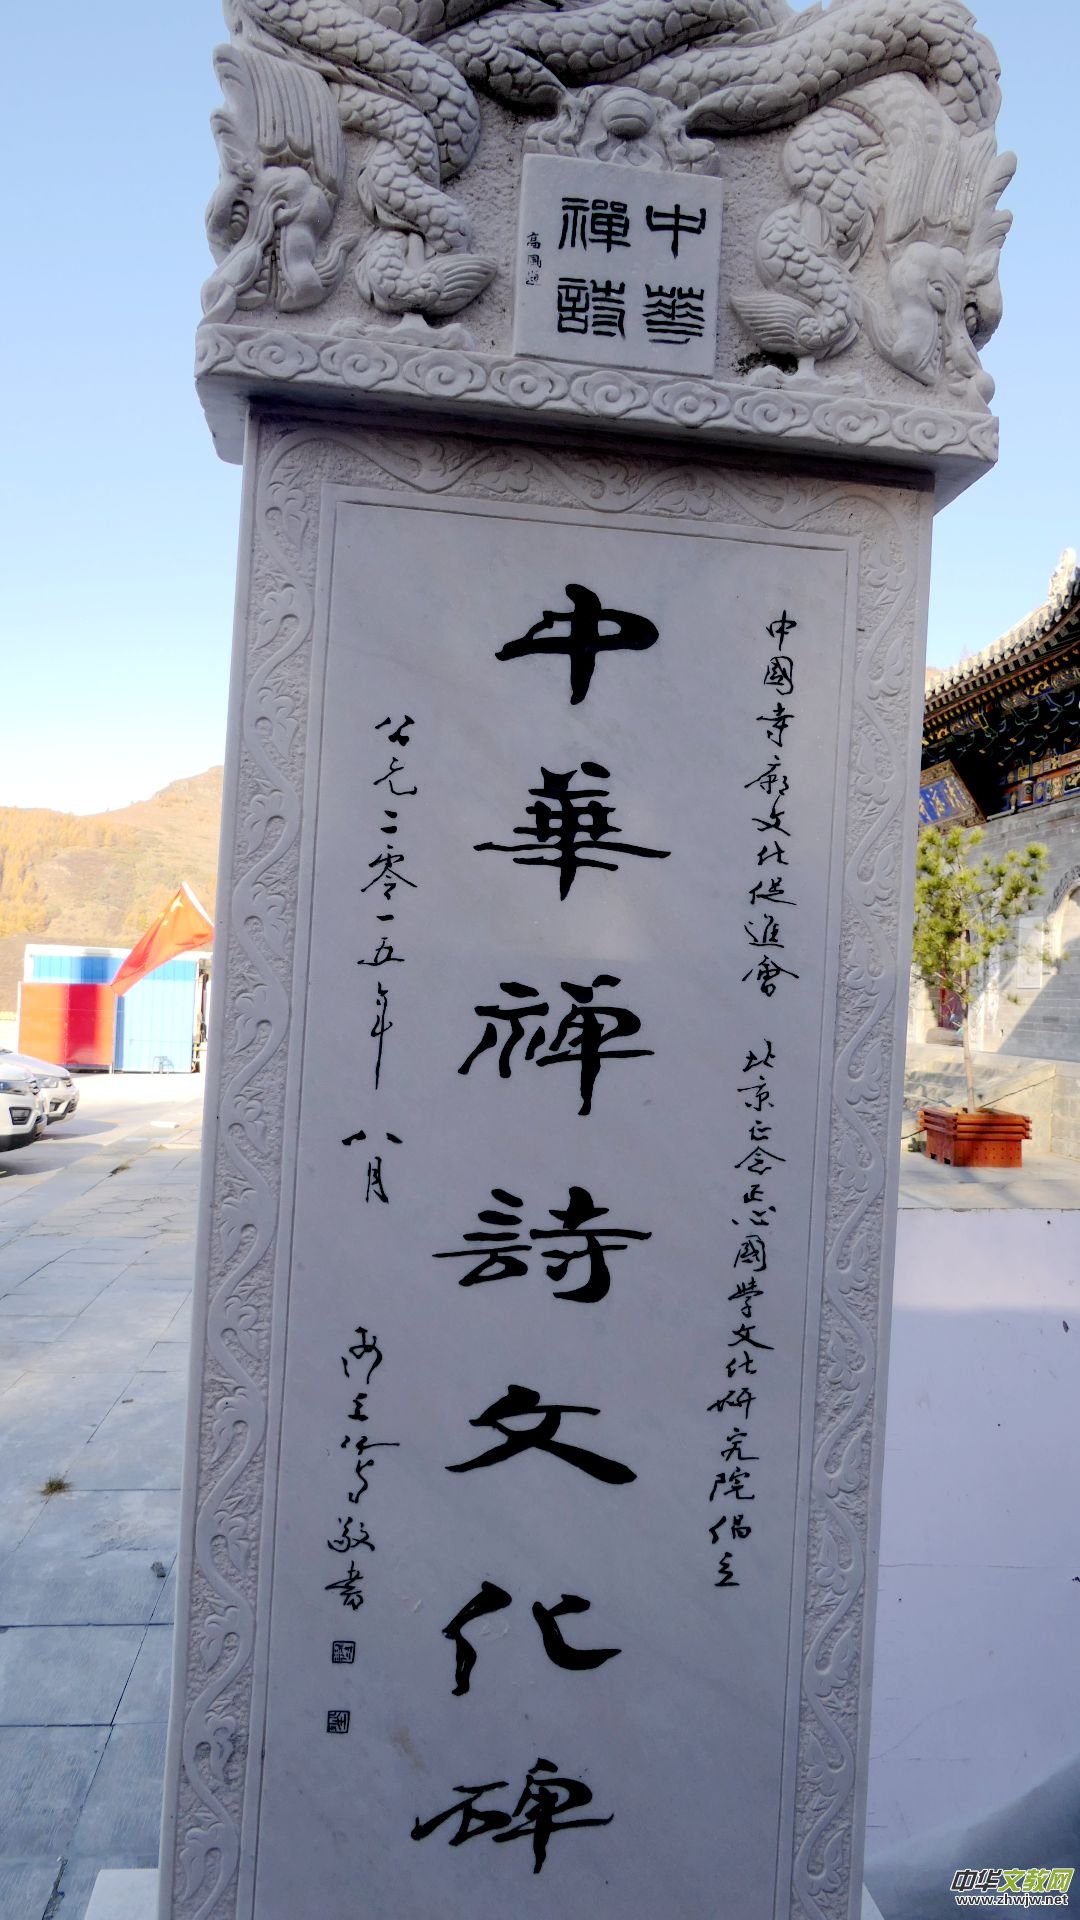 中華
禪詩
中國寺廟文化促進會 北京正念正心國學文化研究院 倡立
中華禪詩文化碑
公元二零一五年 八月
敬書
中华文教网
www.zhwjw.net